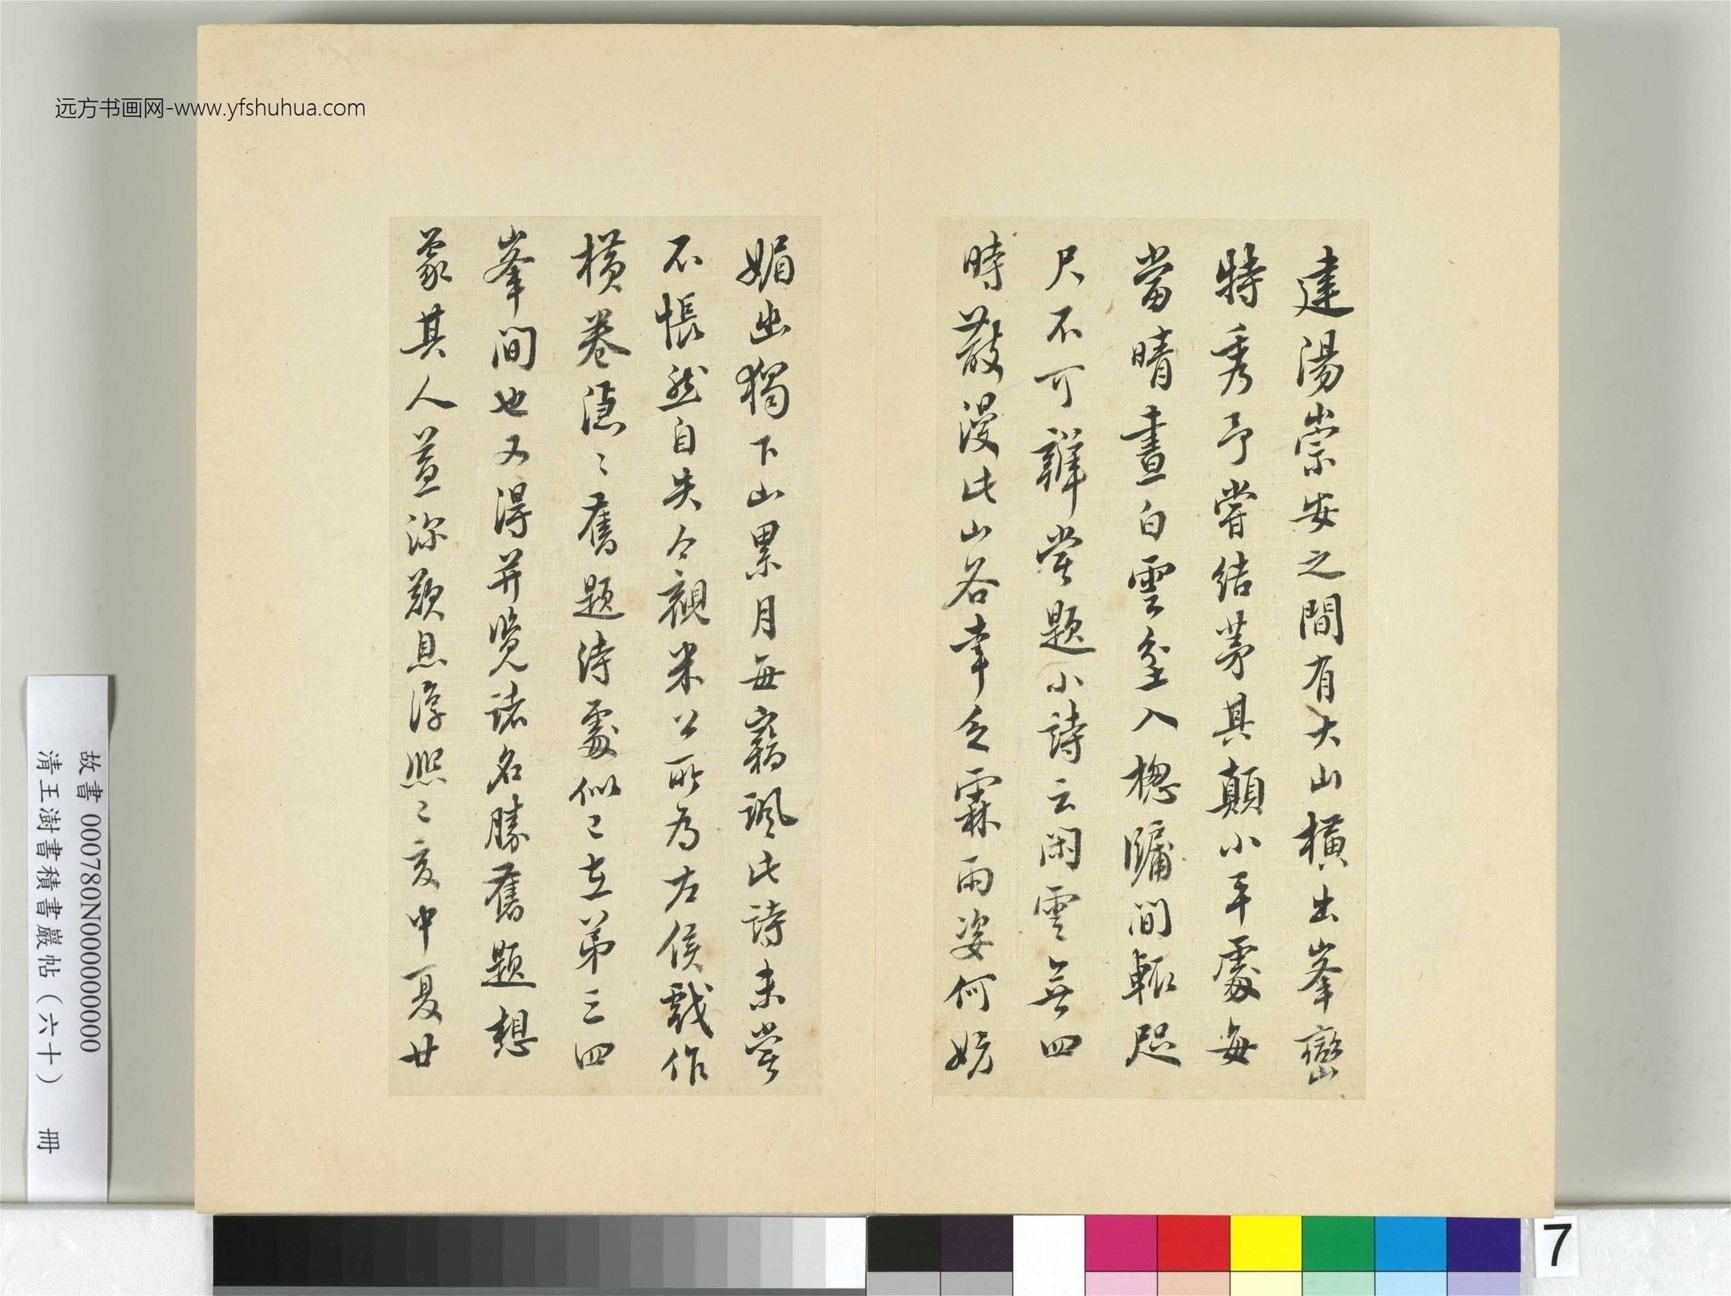 建陽崇安之間有大山橫出峯巒
特秀予嘗結茅其顛小平處每
當晴晝白雲坌入牎牖間輒咫
尺不可辨嘗題小詩云閑雲無四
時散漫此山谷幸乏霖雨姿何妨
媚幽獨下山累月每竊諷此詩未嘗
不悵然自失今觀米公所為左侯戲作
橫卷隱〻舊題詩處似已在第三四
峯間也又得并覽諸名勝舊題想
象其人益深歎息淳熙己亥中夏廿
故書 000780N000000000
清王澍書積書巖帖（六十） 冊
远方书画网-www.yfshuhua.com
7